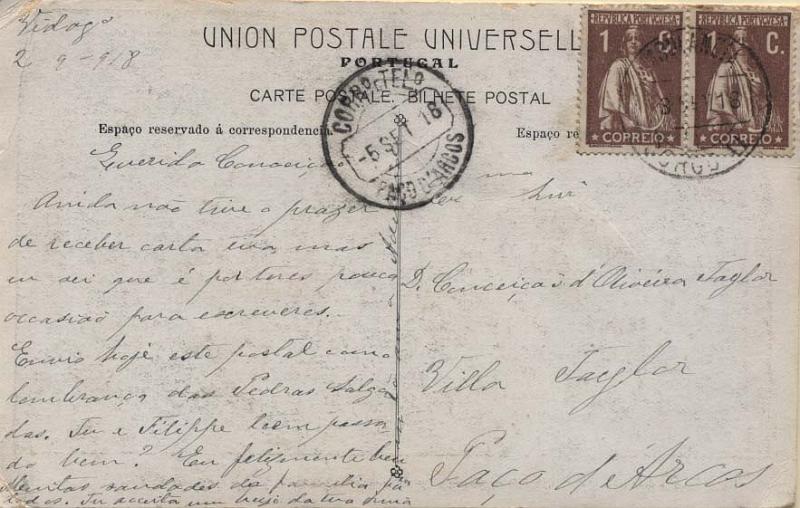 Vidago
2-9-918
UNION POSTALE UNIVERSELLE
PORTUGAL
CARTE POSTALE. BILHETE POSTAL
Espaço reservado á correspondencia.
Espaço re
REPUBLICA PORTUGUESA
1 C.
CORREIO
REPUBLICA PORTUGUESA
1 C.
CORREIO
CORREO-TELO
-5 SET 18
PAÇO D'ARCOS
Querida Conceição
Ainda não tive o prazer
de receber carta tua, mas
eu sei que é por teres pouca
occasião para escreveres.
Envio hoje este postal como
lembrança das Pedras Salga
das. Tu e Filippe teem passa
do bem? Eu felizmente bem
Muitas saudades da familia pa
todos. Tu acceita um beijo da tua irmã
D. Conceição d'Oliveira Taylor
Villa Taylor
Paço d'Arcos